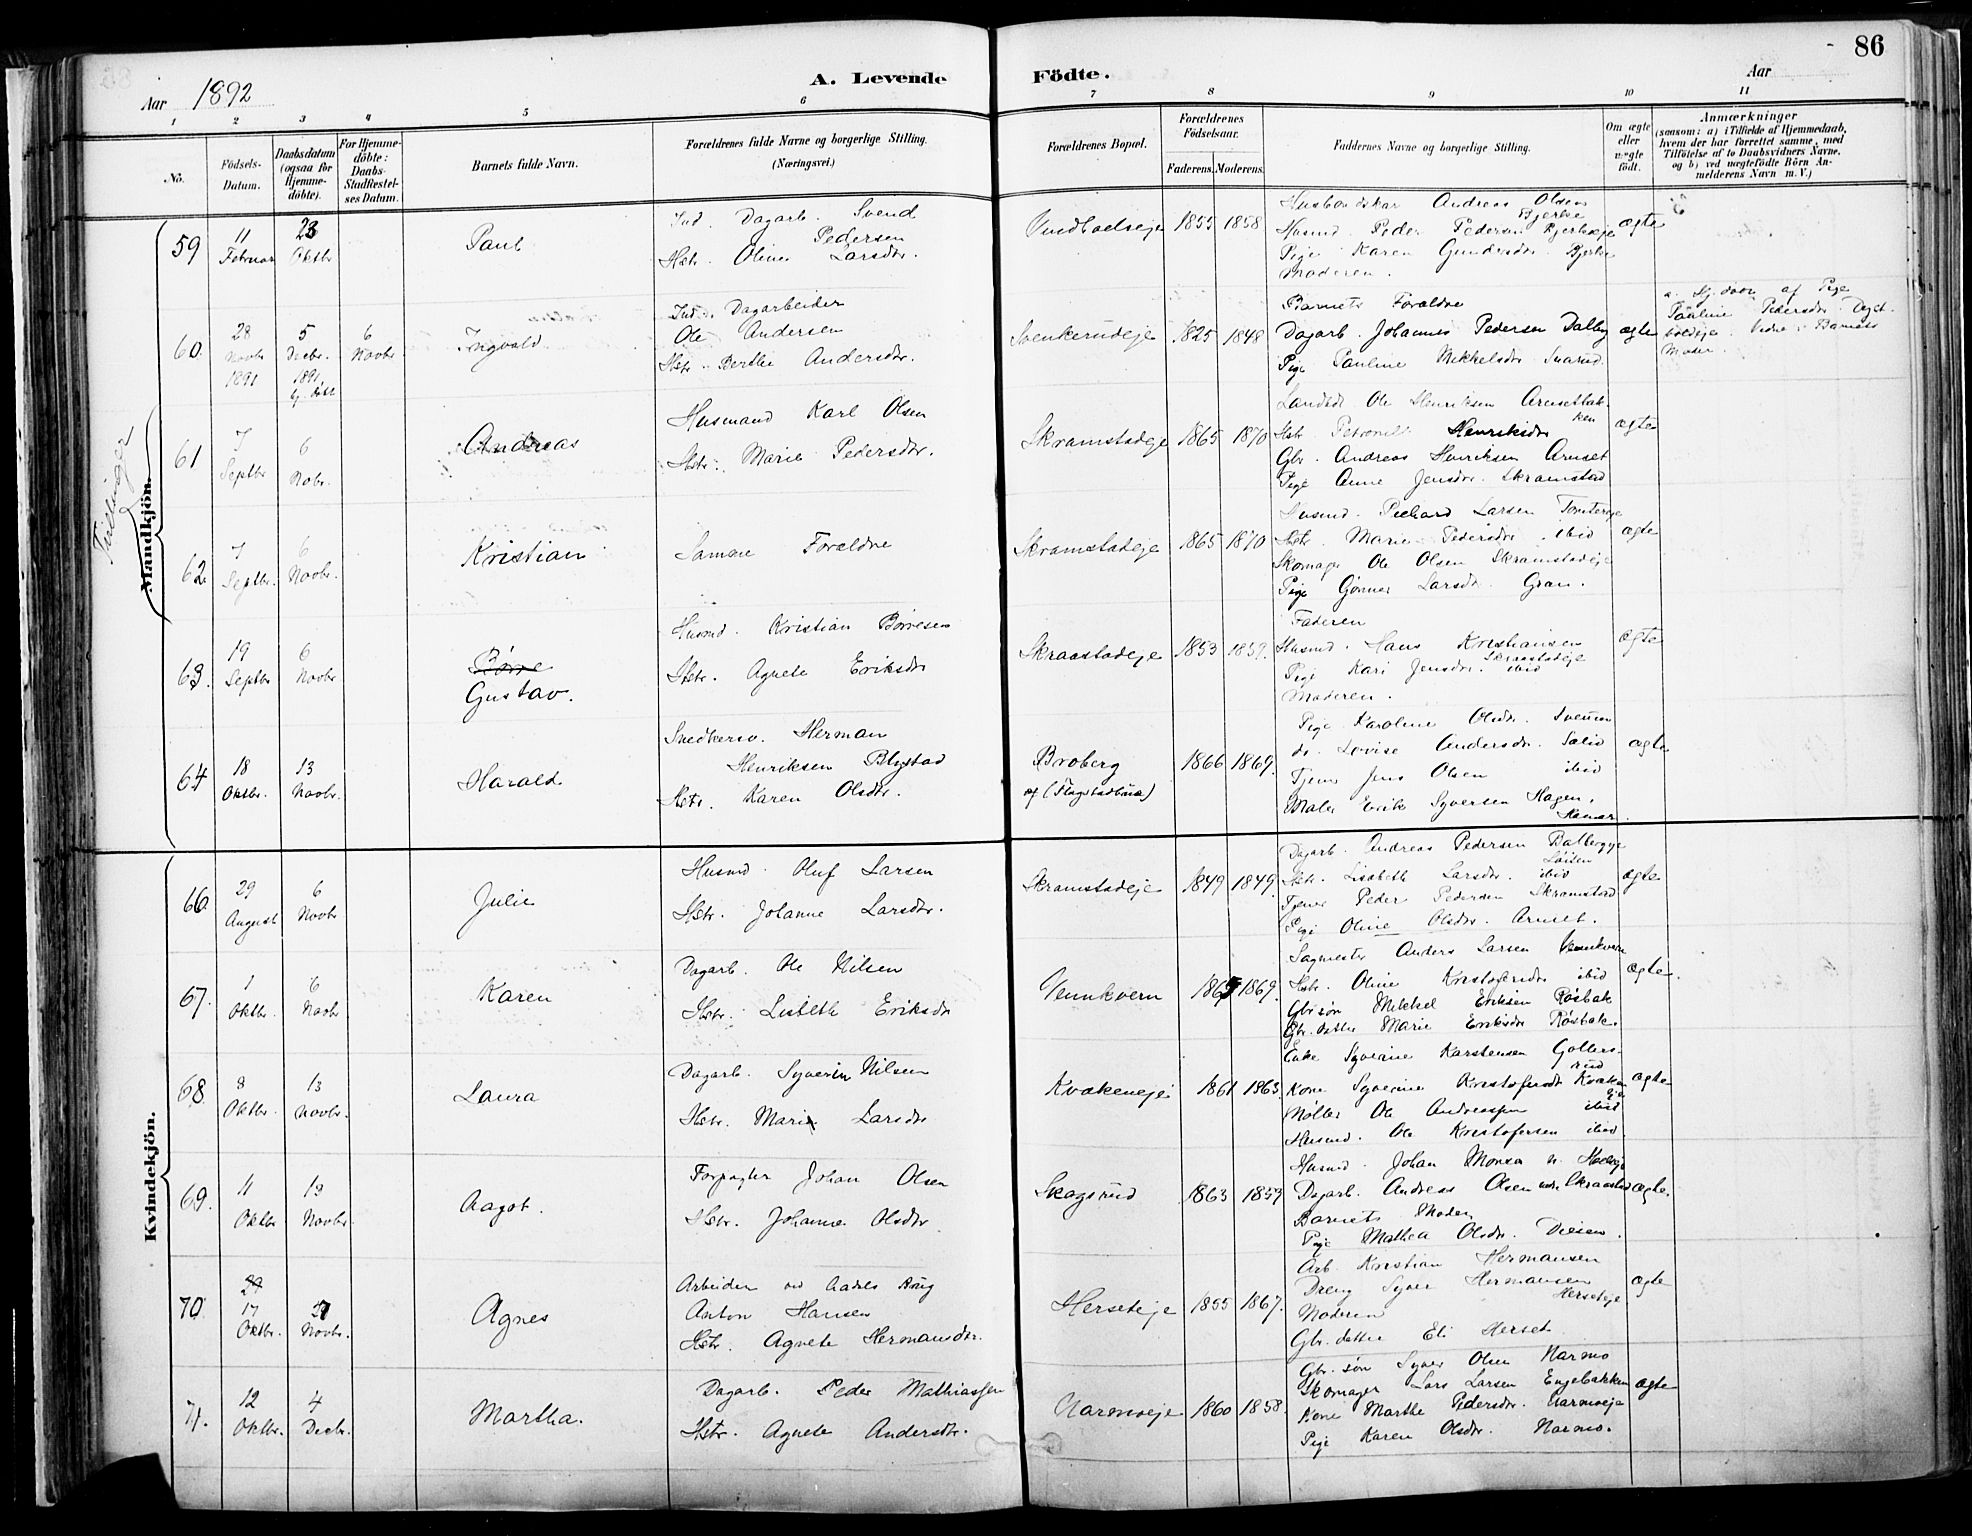 86
Aar 1892
A. Levende Födte.
Aar
1 2 3 4 5 6 7 8 9 10 11
No.
Födsels-Datum.
Daabsdatum (ogsaa for Hjemme-döbte).
For Hjemme-döbte: Daabs-Stadfæstel-ses Datum.
Barnets fulde Navn.
Forældrenes fulde Navne og borgerlige Stilling. (Næringsvei.)
Forældrenes Bopæl.
Forældrenes Födselsaar.
Faderens. Moderens.
Faddernes Navne og borgerlige Stilling.
Om ægte eller uægte födt.
Anmærkninger
(saasom: a) i Tilfælde af Hjemmedaab,
hvem der har forrettet samme, med
Tilföielse af to Daabsvidners Navne,
og b) ved uægtefödte Börn An-
melderens Navn m. V.)
Tvillinger
Mandkjön.
59 11 Februar 23 Oktbr Paul
Ind. Dagarb. Svend
Pedersen
Hstr. Oline Larsdr.
1855 1858
Husbondskar Andreas Olsen
Bjerke
Husmd. Peder Pedersen Bjerkeeje
Pige Karen Gundersdr. Bjerke
Moderen.
ægte
60. 28 Novbr 1891 5 Decbr. 1891 6 Novbr Ingvald
Ind. Dagarbeider
Ole Andersen
Hstr. Berthe Andersdr.
Svenkerudeje 1825 1848
Barnets Forældre
Dagarb. Johannes Pedersen Dalby
Pige Pauline Mikkelsdr.
ægte
a. Hj. døbt af Pige
Pauline Pedersdr.
Vidne: Barnets
Moder.
61 7 Septbr 6 Nobr. Andreas
Husmand Karl Olsen
Hstr. Marie Pedersdr.
Skramstadeje 1865 1870
Ole Henriksen Arnsetbak-
ken
Hstr. Henriksdr
Gbr. Andreas Henriksen Arnset
Pige Anne Jensdr. Skramstad
ægte
62 7 Septbr. 6 Novbr. Kristian
Samme Forældre
Skramstadeje 1865 1870
Husmd. Larsen
Hstr. Marie Pedersdr. ibid
Skomager Ole Olsen Skramstadeje
Pige Larsdr. Gran.
ægte
63. 19 Septbr 6 Novbr. Børre
Gustav.
Husmd. Kristian Børresen
Hstr. Agnete Eriksdr
Skraastadeje 1853 1859.
Faderen
Husmd. Hans Kristiansen
Skraastadeje
Pige Kari Jensdr. ibid
Moderen.
ægte
64 18 Oktbr. 13 Novbr. Harald
Snedkersv. Herman
Henriksen Blystad
Hstr. Karen Olsdtr.
Broberg
af (Flagstadbrua)
1866 1869.
Pige Karoline Olsdr.
do. Lovise Andersdr.
Tjener Jens Olsen ibid
Maler Erik Syversen Hagen,
Hamar.
ægte
Kvindekjön.
66. 29 August 6 Novbr Julie
Husmd. Oluf Larsen
Hstr. Johanne Larsdtr.
Skramstadeje 1849 1849.
Dagarb. Andreas Pedersen
Løiten
Hstr. Lisabeth Larsdr. ibid
Tjener Peder Pedersen Skramstad
Pige Oline Olsdr. Arnset.
ægte
67. 1 Oktbr. 6 Novbr Karen
Dagarb. Ole Nilsen
Hstr. Lisbeth Eriksdr
Vennkvern 1865 1869.
Sagmester Anders Larsen Vennkvern
Hstr. Oline Kristofersdr ibid
Gbr.søn Mikkel Eriksen Røsbak
Gbr.datter Marie Eriksdr Røsbak.
ægte.
68. 8 Oktbr. 13 Novbr. Laura
Dagarb. Syverin Nilsen
Hstr. Marie Larsdr
Kvakeneje 1861 1863.
Enke Syverine Karstensen Gollers-
rud
Kone Syverine Kristofersdr Kvaken
eje
Møller Ole Andreassen ibid
Husmd. Ole Kristofersen ibid.
ægte
69. 11 Oktbr 13 Novbr. Aagot.
Forpagter Johan Olsen
Hstr. Johanne Olsdtr.
Skogsrud 1863 1859
Husmd. Johan
Dagarb. Andreas Olsen Skraastad
Barnets Moder
Pige Mathea Olsdr. Diesen.
ægte.
70. 29 17 Oktbr. 27 Novbr. Agnes
Arbeider ved Aadals Brug
Anton Hansen
Hstr. Agnete Hermansdr.
Herseteje 1855 1867.
Arb. Kristian Hermansen
Dreng Syver Hermansen
Herseteje
Moderen
Gbr. datter Eli Herset
ægte
71. 12 Oktbr. 4 Decbr. Martha.
Dagarb. Peder Mathiassen
Hstr. Agnete Andersdtr.
Narmoeje 1860 1858.
Gbr. søn Syver Olsen Narmo
Skomager Lars Larsen Engebakken
Kone Marthe Pedersdr. Narmoeje
Pige Karen Olsdr. Narmo.
ægte